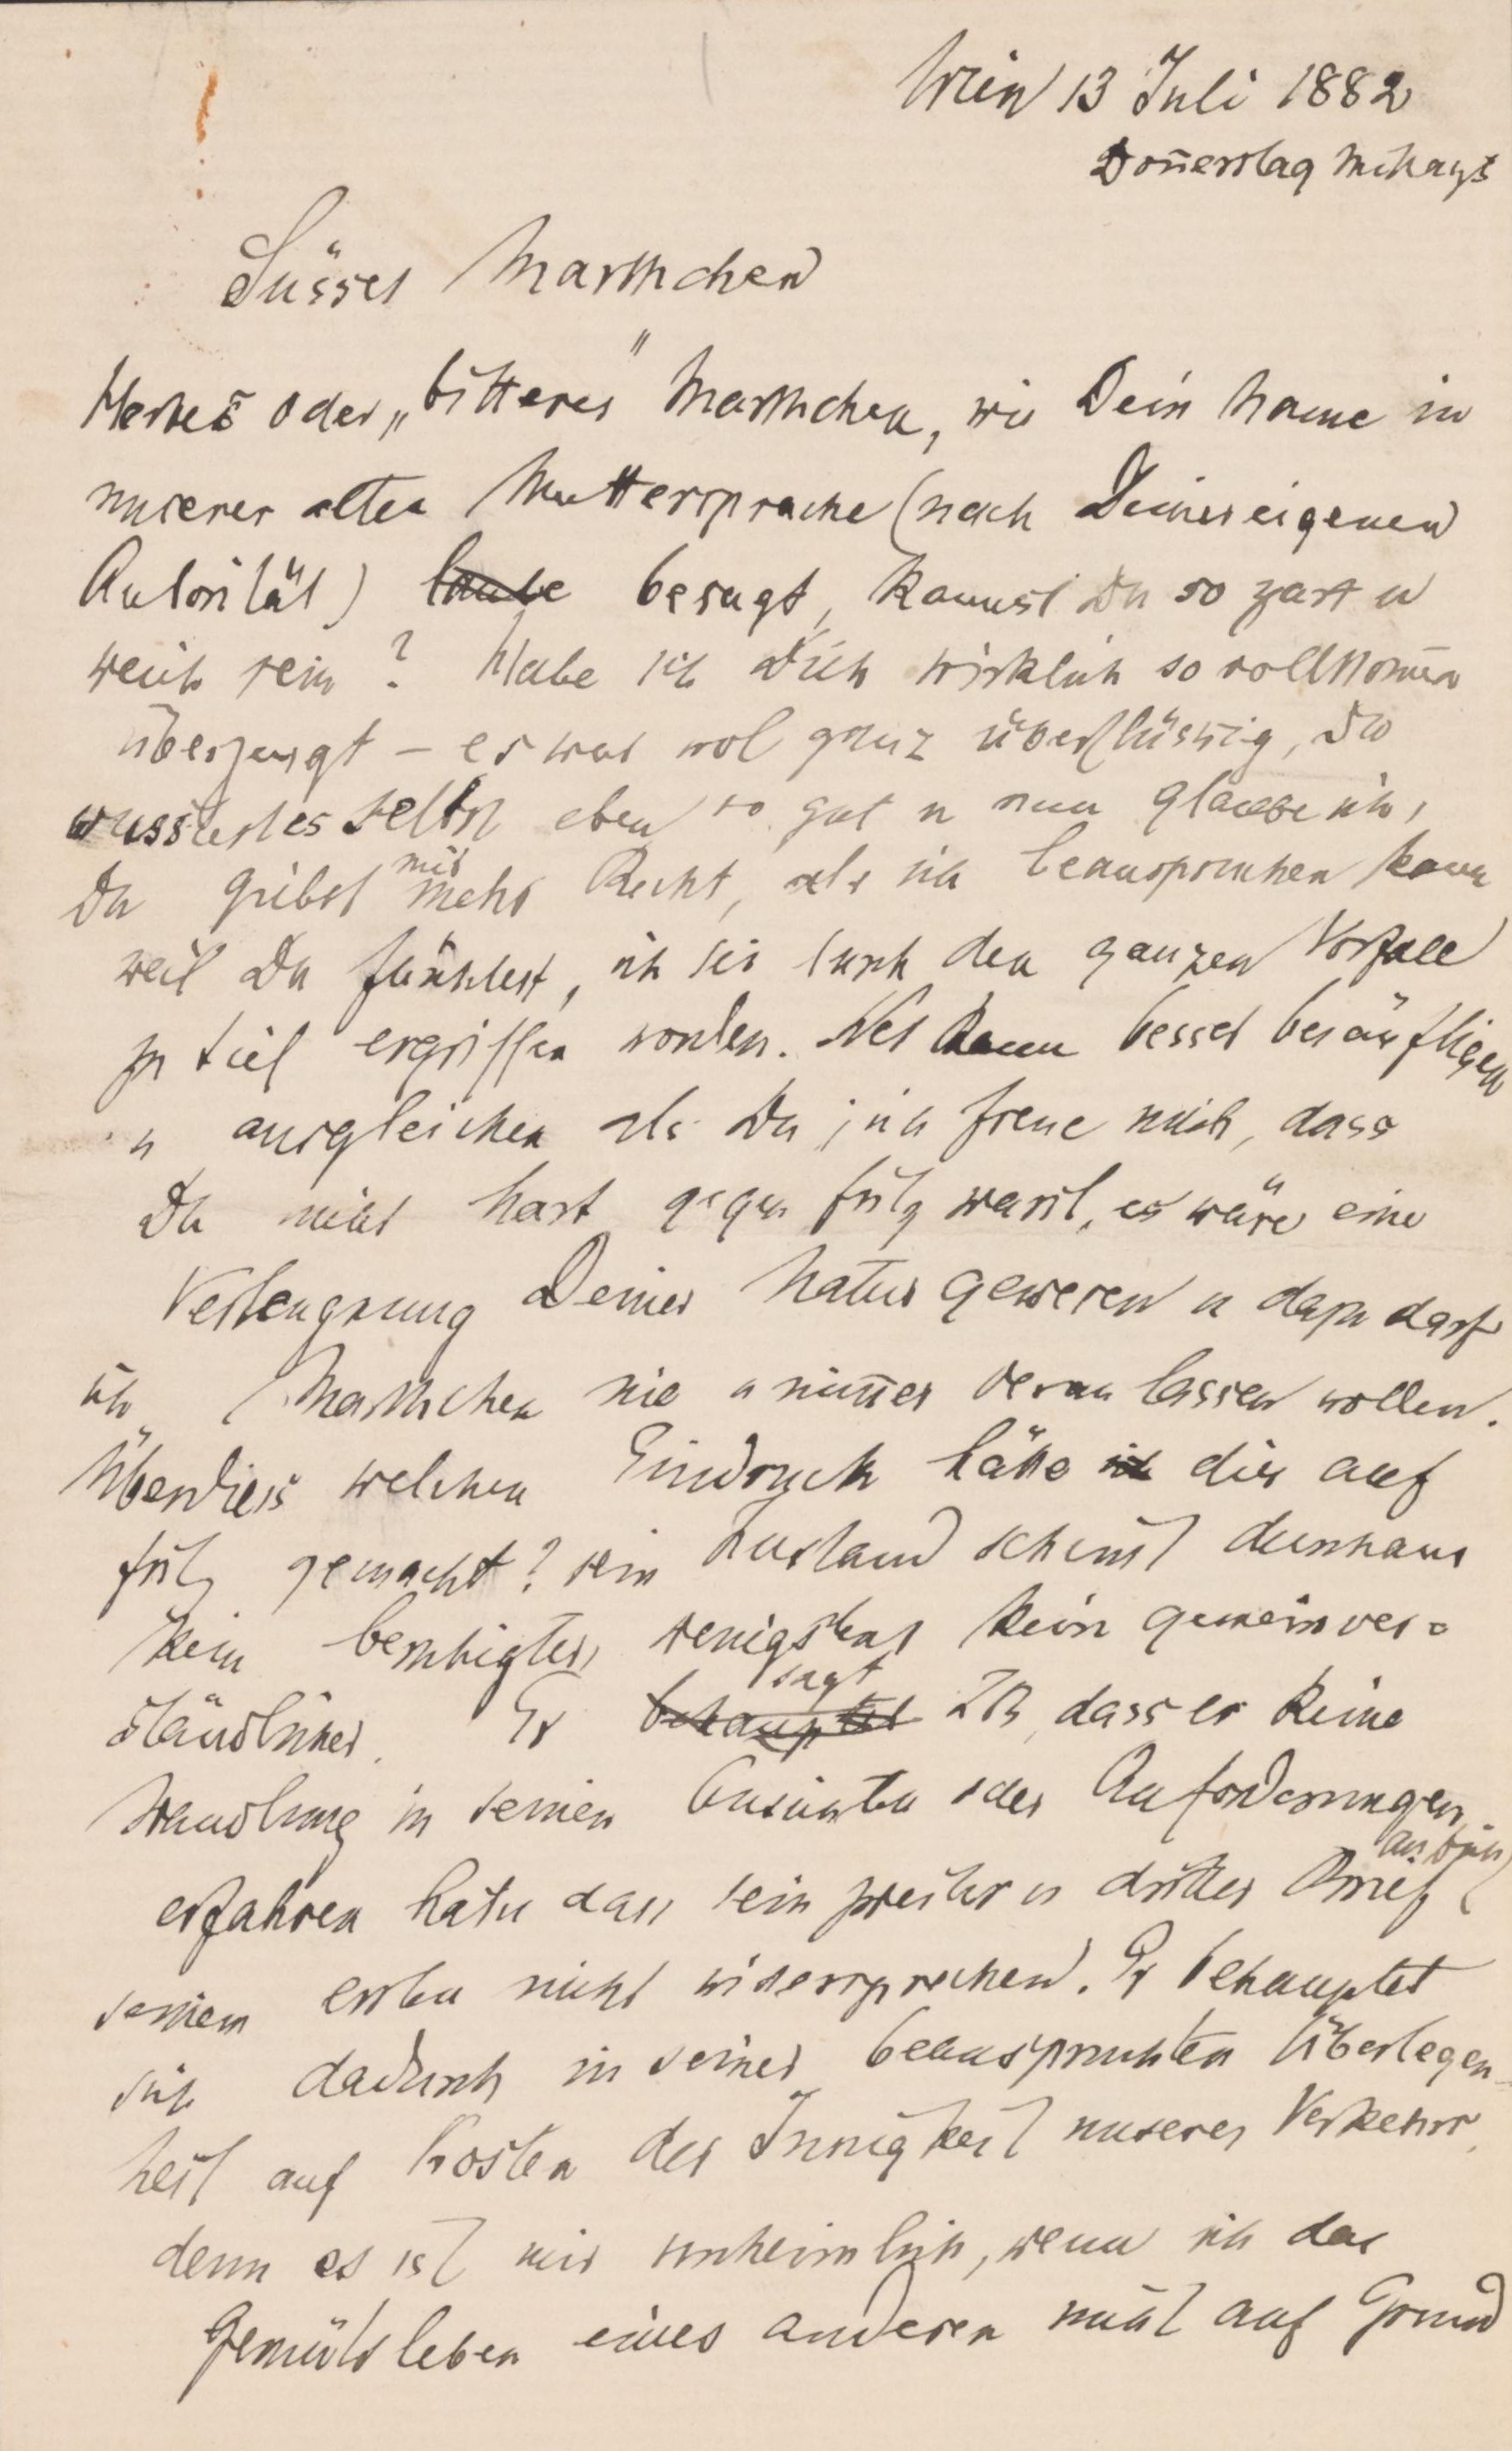 Wien 13 Juli 1882
Don̄erstag Mittags
Süsses Marthchen
Herbes oder „bitteres" Marthchen, wie Dein Name in
unserer alten Muttersprache (nach Deiner eigenen
Autorität) laute besagt, kannst Du so zart u
weich sein? Habe ich Dich wirklich so vollkom̄en
überzeugt – es war wol ganz überflüssig, Du
wusstest es selbst eben so gut u nun glaube ich,
Du giebst mir mehr Recht, als ich beanspruchen kann
weil Du fürchtest, ich sei durch den ganzen Vorfall
zu tief ergriffen worden. Wer kann besser besänftigen
u ausgleichen als Du; ich freue mich, dass
Du nicht hart gegen Fritz warst, es wäre eine
Verleugnung Deiner Natur gewesen u dazu darf
ich Marthchen nie u nim̄er veranlassen wollen.
Überdies welchen Eindruck hätte ich dies auf
Fritz gemacht? Sein Zustand scheint durchaus
kein beruhigter, wenigstens kein gemeinver=
ständlicher. Er behauptet sagt ZB, dass er keine
Wandlung in seinen Ansichten oder Anforderungen
erfahren hat u dass sein zweiter u dritter Brief an Dich
seinem ersten nicht widersprechen. Er behauptet
sich dadurch in seiner beanspruchten Überlegen-
heit auf Kosten der Innigkeit unseres Verkehrs,
denn es ist mir unheimlich, wenn ich das
Gemütsleben eines anderen nicht auf Grund